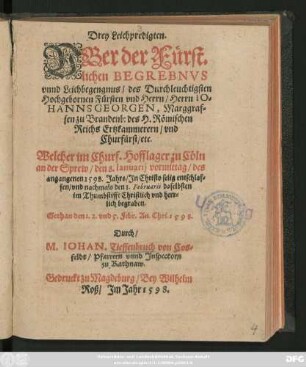 Drey Leichpredigten.
Vber der Fürst-
lichen BEGREBNVS
vnnd Leichbegengnus / des Durchleuchtigsten
Hochgebornen Fürsten vnd Herrn / Herrn IO-
HANNSGEORGEN, Marggraf-
fen zu Brandenb: des H. Römischen
Reichs Ertzkammerern / vnd
Churfürst / etc.
Welcher im Churf. Hofflager zu Cöln
an der Sprew / den 8. Ianuarij vormittag / des
angangenen 1598. Jahrs / In Christo selig entschlaf-
fen / vnd nachmals den 1. Februarij daselbsten
im Thumbstifft Christlich vnd herr-
lich begraben.
Gethan den 1. 2. vnd 5. Febr. An. Chri. 1598.
Durch /
M. IOHAN. Tieffenbruch von Cos-
felds / Pfarrern vnnd Inspectorn
zu Rathnaw.
Gedruckt zu Magdeburg / Bey Wilhelm
Roß / Im Jahr 1598.